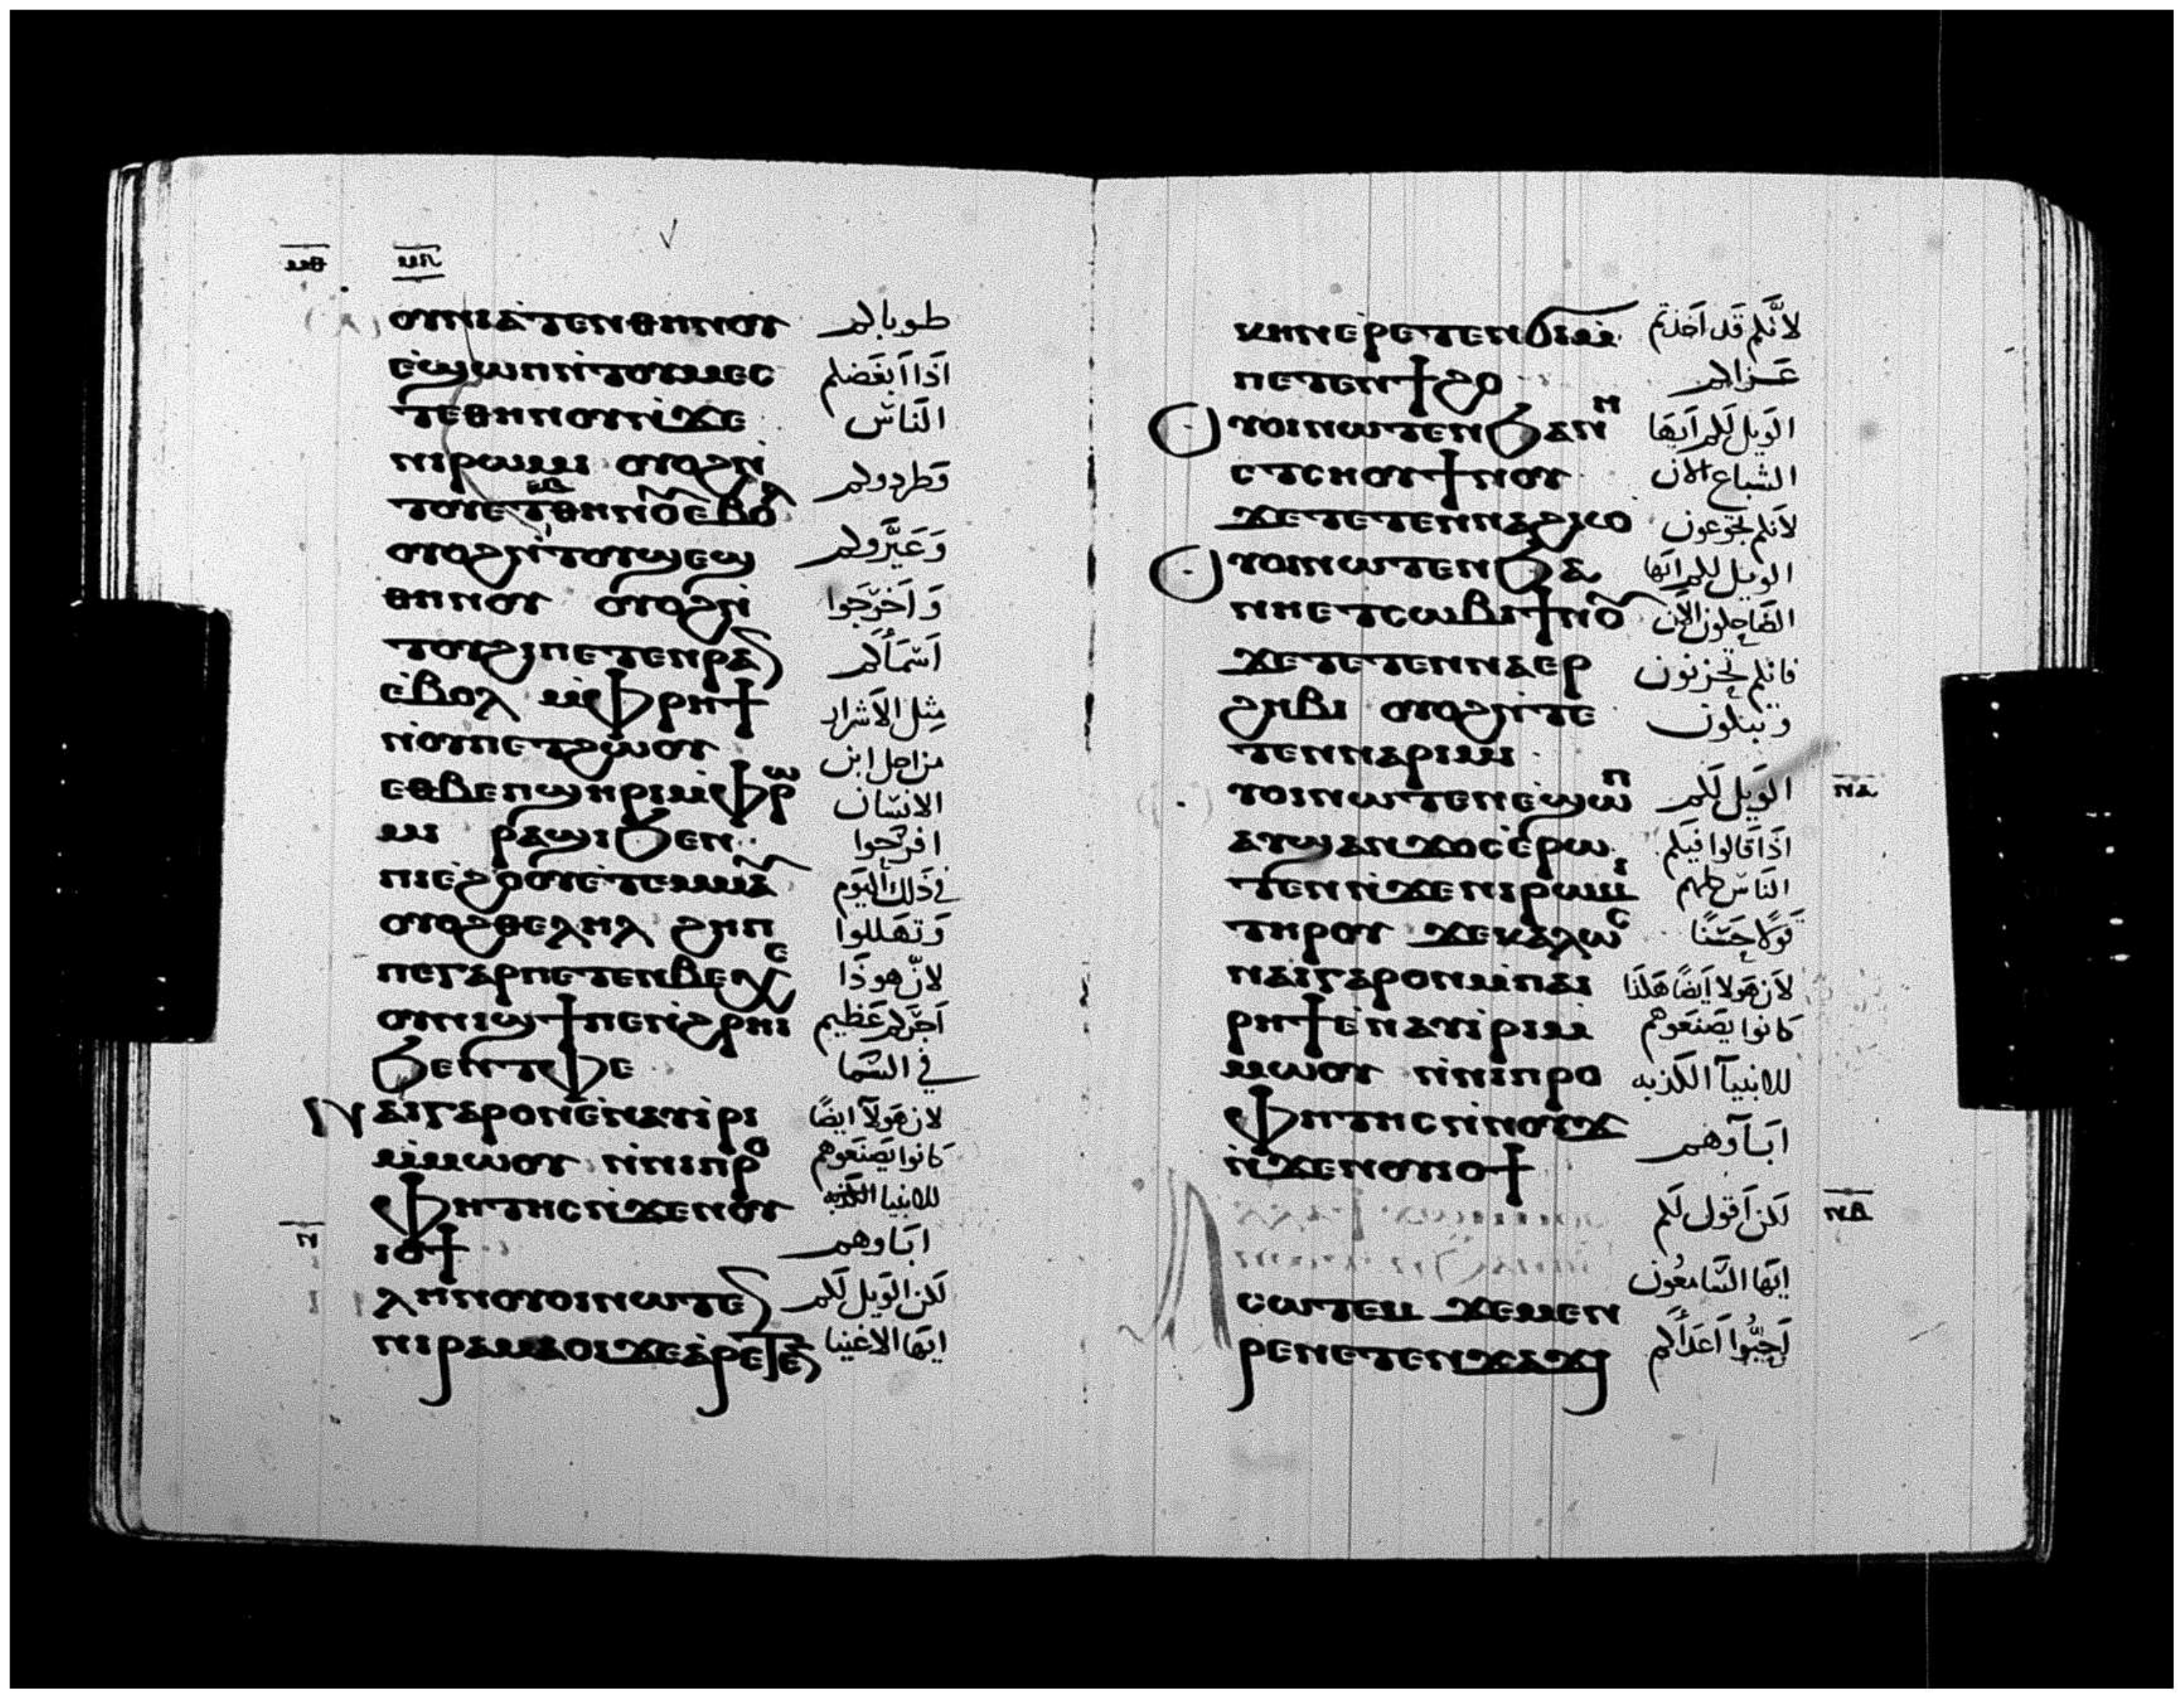 ⲙⲑ ⲙⲏ
ⲱⲟⲩⲛⲓⲁⲧⲉⲛⲑⲏⲛⲟⲩ طوبالكم
ⲉϣⲱⲡⲛ̀ⲧⲟⲩⲙⲉⲥ اذا ابغضكم
ⲧⲉⲑⲏⲛⲟⲩⲛ̀ϫⲉ الناس
ⲛⲓⲣⲱⲙⲓ ⲟⲩⲟϩⲛ̀
ⲧⲟⲩⲉⲧⲑⲏⲛⲟ̅ⲉⲃⲟⲗ وطردوكم
ⲟⲩⲟϩⲛ̀ⲧⲟⲩϣⲉϣ وعيَّروكم
ⲑⲏⲛⲟⲩ ⲟⲩⲟϩⲛ̀ واخرجوا
ⲧⲟⲩϩⲓⲡⲉⲧⲉⲛⲣⲁⲛ اسمأكم
ⲉ̀ⲃⲟⲗ ⲙ̀ⲫⲣⲏϯ مثل الاشرار
ⲛ̀ⲟⲩⲡⲉⲧϩⲱⲟⲩ من اجل ابن
ⲉⲑⲃⲉⲡϣⲏⲣⲓⲙ̀ⲫⲣⲱ الانسان
ⲙⲓ ⲣⲁϣⲓϧⲉⲛ افرحوا
ⲡⲓⲉ̀ϩⲟⲟⲩⲉ̀ⲧⲉⲙⲙⲁ في ذلك اليوم
ⲟⲩⲟϩⲑⲉⲗⲏⲗ ϩⲏⲡ وتهللوا
ⲡⲉⲅⲁⲣⲡⲉⲧⲉⲛⲃⲉⲭⲉ لان هوذا
ⲟⲩⲛⲓϣϯⲡⲉⲛ̀ϩⲣⲏⲓ اجركم عظيم
ϧⲉⲛⲧⲫⲉ في السما
ⲛⲁⲓⲅⲁⲣⲟⲛⲉ̀ⲛⲁⲩⲓⲣⲓ لان هولآ ايضًا
ⲙ̀ⲙⲱⲟⲩ ⲛ̀ⲛⲓⲡⲣⲟ كانوا يصنعوهم
ⲫⲏⲧⲏⲥⲛ̀ϫⲉⲛⲟⲩ للانبيا الكذبه
ⲓⲟϯ اباوهم
ⲛ
ⲗⲏⲛⲟⲩⲟⲓⲛⲱⲧⲉⲛ لكن الويل لكم
ⲛⲓⲣⲁⲙⲁⲟⲓϫⲉⲁ̀ⲣⲉⲧⲉⲛ ايها الاغنيا
ⲕⲏⲛⲉ̀ⲣⲉⲧⲉⲛϭⲓⲙ̀ لأنّكم قد اخذتم
ⲡⲉⲧⲉⲛϯϩⲟ عزاكم
ⲩⲟⲓⲛⲱⲧⲉⲛϧⲁⲛⲏ الويل لكم ايها
ⲉⲧⲥⲏⲟⲩϯⲛⲟⲩ الشباع الان
ϫⲉⲧⲉⲧⲉⲛⲛⲁϩⲕⲟ لانكم تجوعون
ⲩⲟⲓⲛⲱⲧⲉⲛϧⲁ الويل لكم ايها
ⲛⲏⲉⲧⲥⲱⲃⲓϯⲛⲟ̅ الضاحكون الان
ϫⲉⲧⲉⲧⲉⲛⲛⲁⲉⲣ فانكم تحزنون
ϩⲏⲃⲓ ⲟⲩⲟϩⲛ̀ⲧⲉ وتبكون
ⲧⲉⲛⲛⲁⲣⲓⲙⲓ
ⲩⲟⲓⲛⲱⲧⲉⲛⲉ̀ϣⲱⲡ الويل لكم ⲛⲁ
ⲁⲩϣⲁⲛϫⲟⲥⲉ̀ⲣⲱ اذا قالوا فيكم
ⲧⲉⲛⲛ̀ϫⲉⲛⲓⲣⲱⲙⲓ الناس كلهم
ⲧⲏⲣⲟⲩ ϫⲉⲕⲁⲗⲱⲥ قولًا حسنًا
ⲛⲁⲓⲅⲁⲣⲟⲛⲙ̀ⲡⲁⲓ لان هولا ايضًا هكذا
ⲣⲏϯⲉ̀ⲛⲁⲩⲓⲣⲓⲙ̀ كانوا يصنعوهم
ⲙⲱⲟⲩ ⲛ̀ⲛⲓⲡⲣⲟ للانبيآ الكذبه
ⲫⲏⲧⲏⲥⲛ̀ⲛⲟⲩϫ اباوهم
ⲛ̀ϫⲉⲛⲟⲩⲓⲟϯ
لكن اقول لكم ⲛⲃ
ايها السامعون
ⲥⲱⲧⲉⲙ ϫⲉⲙⲉⲛ
ⲣⲉⲛⲉⲧⲉⲛϫⲁϫⲓ احبّوا اعدأكم